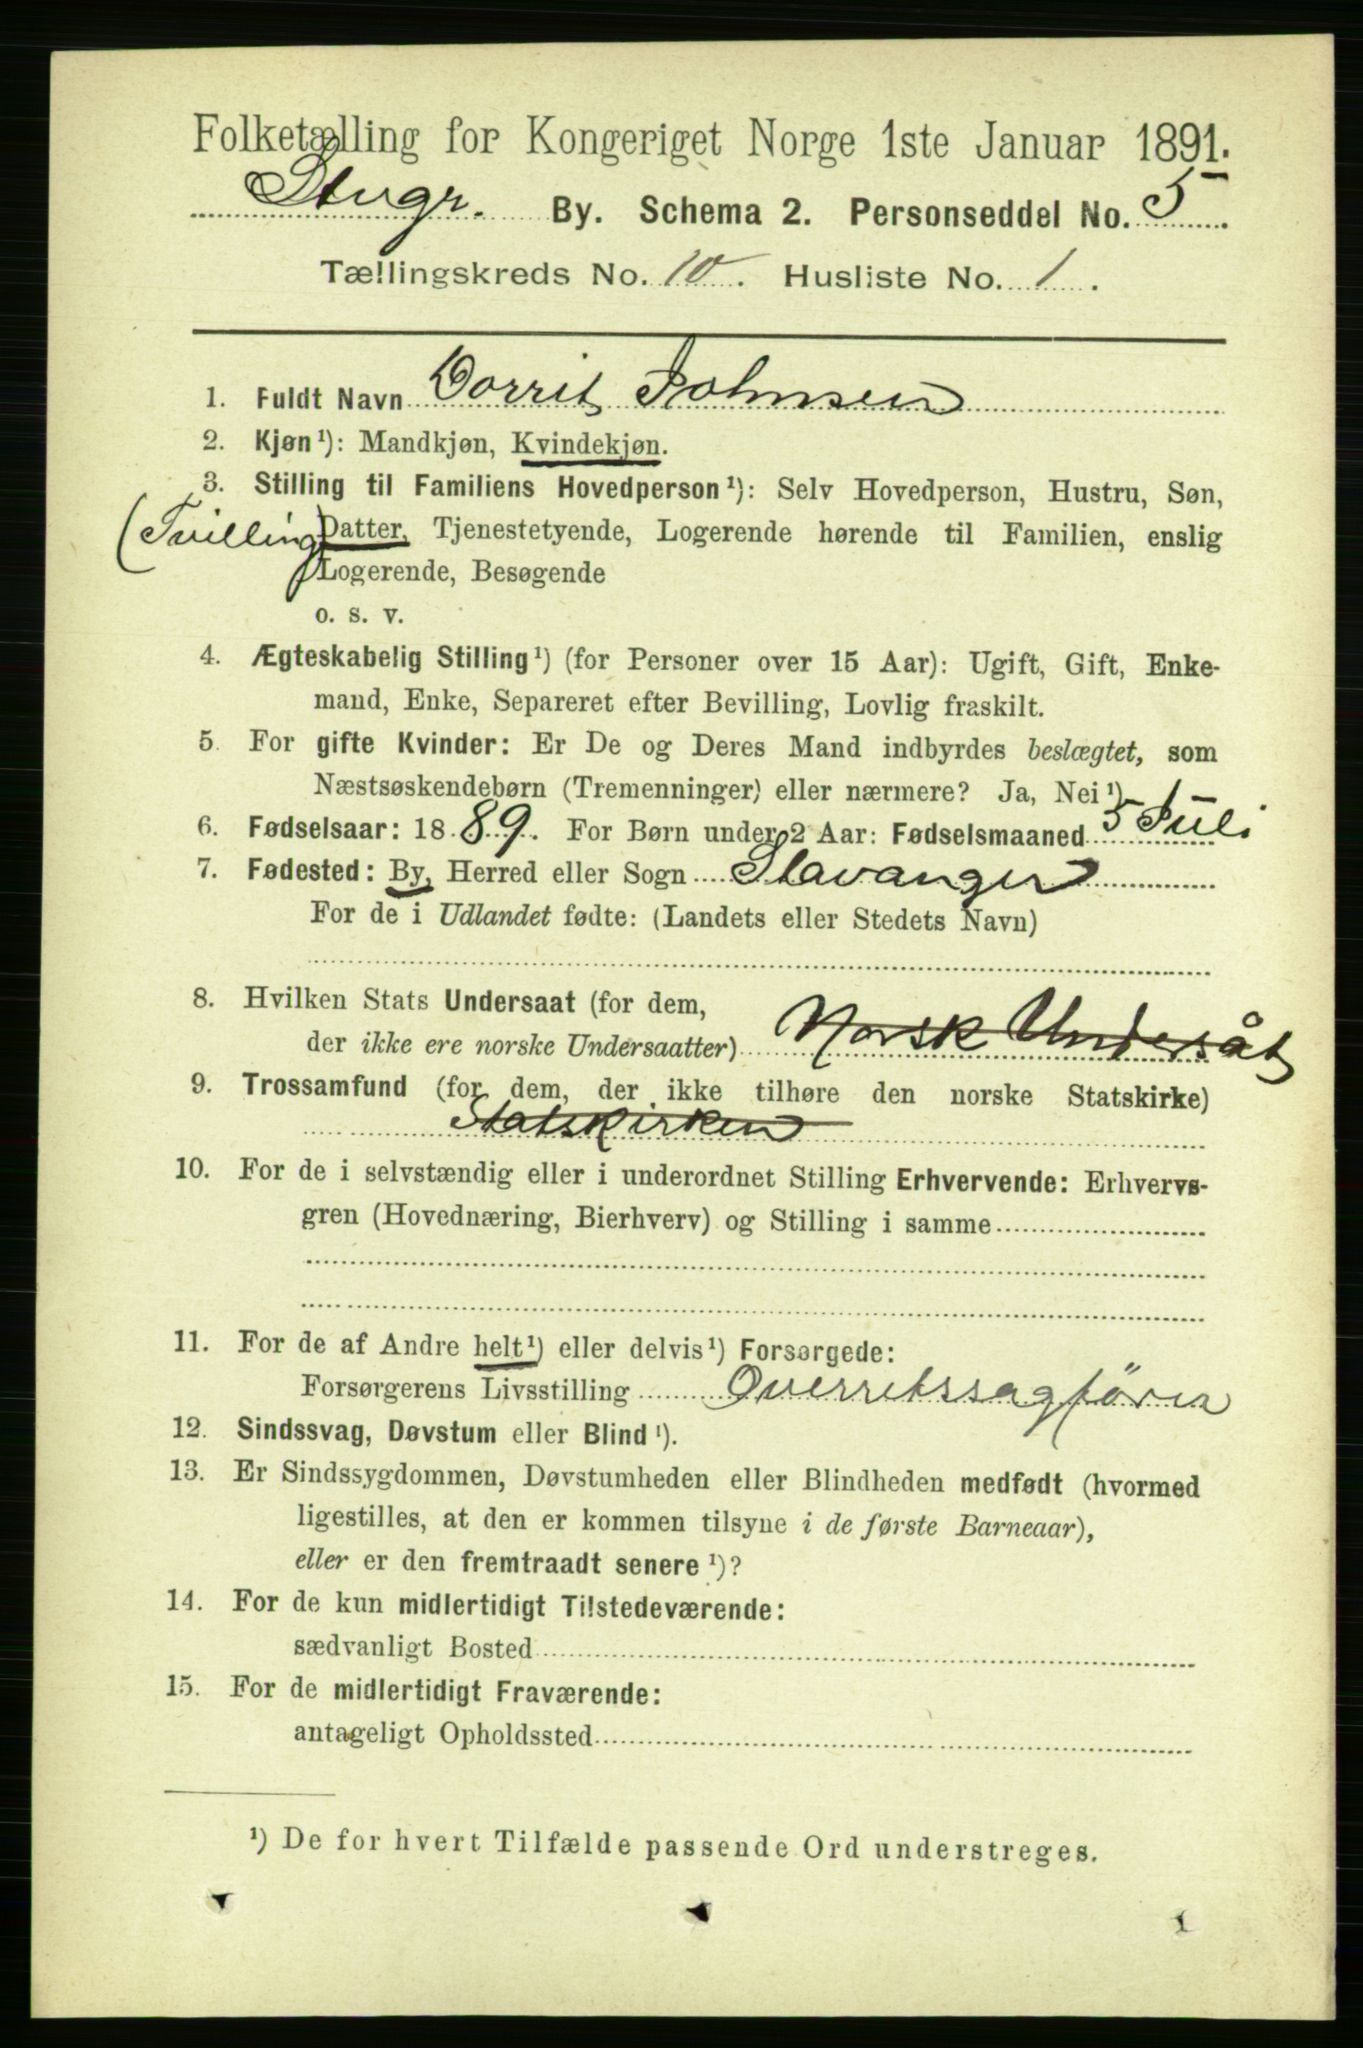 Folketælling for Kongeriget Norge 1ste Januar 1891.
Stvgr. By. Schema 2. Personseddel No. 5
Tællingskreds No. 10. Husliste No. 1.
1. Fuldt Navn Dorrit Johnsen
2. Kjøn ¹): Mandkjøn, Kvindekjøn.
3. Stilling til Familiens Hovedperson ¹): Selv Hovedperson, Hustru, Søn,
(Tvilling) Datter, Tjenestetyende, Logerende hørende til Familien, enslig
Logerende, Besøgende
o. s. v.
4. Ægteskabelig Stilling ¹) (for Personer over 15 Aar): Ugift, Gift, Enke-
mand, Enke, Separeret efter Bevilling, Lovlig fraskilt.
5. For gifte Kvinder: Er De og Deres Mand indbyrdes beslægtet, som
Næstsøskendebørn (Tremenninger) eller nærmere? Ja, Nei ¹)
6. Fødselsaar: 1889. For Børn under 2 Aar: Fødselsmaaned 5 Juli
7. Fødested: By, Herred eller Sogn Stavanger
For de i Udlandet fødte: (Landets eller Stedets Navn)
8. Hvilken Stats Undersaat (for dem,
der ikke ere norske Undersaatter) Norsk Undersåt
9. Trossamfund (for dem, der ikke tilhøre den norske Statskirke)
Statskirken
10. For de i selvstændig eller i underordnet Stilling Erhvervende: Erhvervs-
gren (Hovednæring, Bierhverv) og Stilling i samme
11. For de af Andre helt ¹) eller delvis ¹) Forsørgede:
Forsørgerens Livsstilling Overretssagförer
12. Sindssvag, Døvstum eller Blind ¹).
13. Er Sindssygdommen, Døvstumheden eller Blindheden medfødt (hvormed
ligestilles, at den er kommen tilsyne i de første Barneaar),
eller er den fremtraadt senere ¹)?
14. For de kun midlertidigt Tilstedeværende:
sædvanligt Bosted
15. For de midlertidigt Fraværende:
antageligt Opholdssted
¹) De for hvert Tilfælde passende Ord understreges.